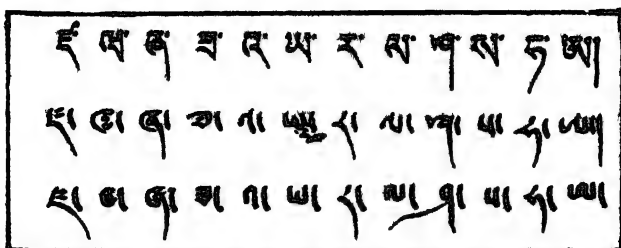 ཛ་ ཝ་ ཞ་ ཟ་ འ་ ཡ་ ར་ ལ་ ཤ་ ས་ ཧ་ ཨ།
ཛ། ཝ། ཞ། ཟ། འ། ཡ། ར། ལ། ཤ། ས། ཧ། ཨ།
ཛ། ཝ། ཞ། ཟ། འ། ཡ། ར། ལ། ཤ། ས། ཧ། ཨ།